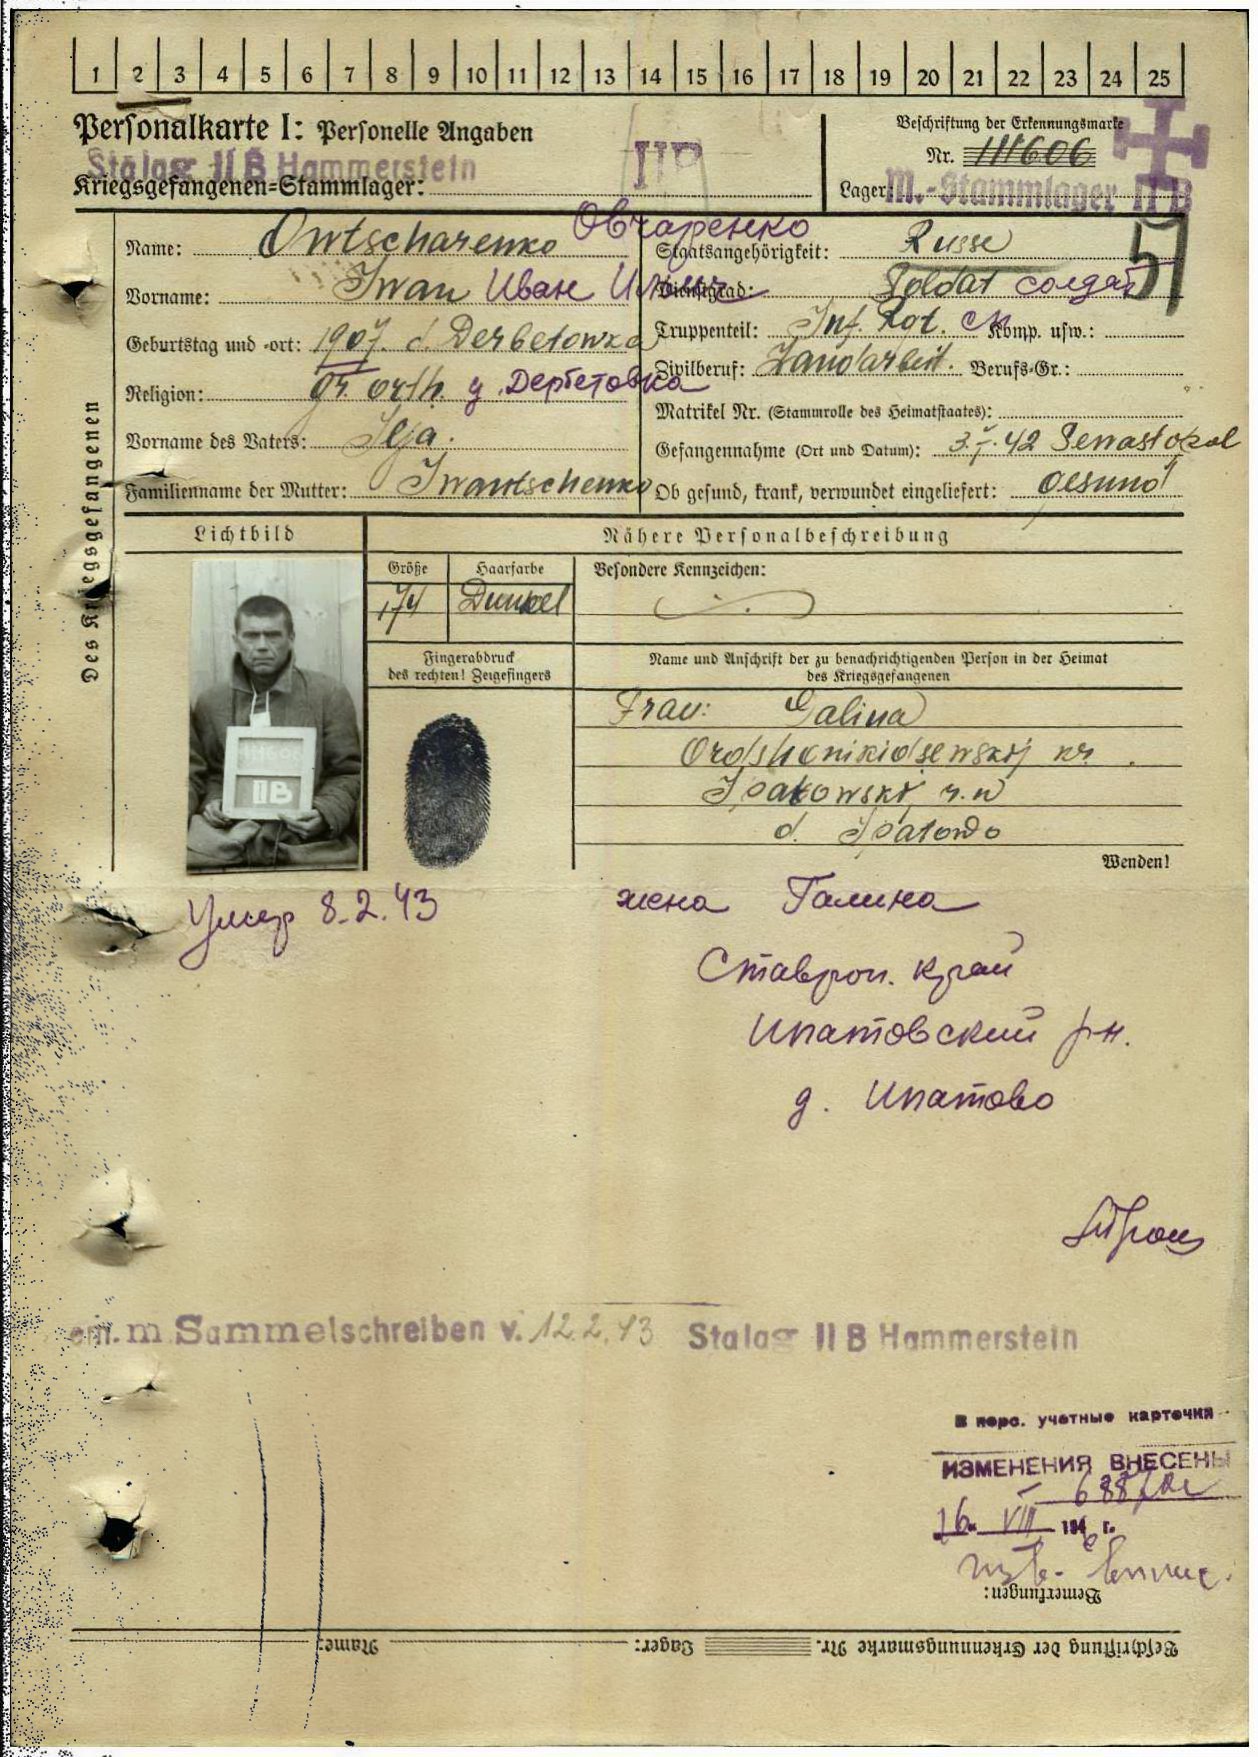 1 2 3 4 5 6 7 8 9 10 11 12 13 14 15 16 17 18 19 20 21 22 23 24 25
Personalkarte I: Personelle Angaben
Stalag II B Hammerstein
Kriegsgefangenen-Stammlager:
II B
Beschriftung der Erkennungsmarke
Nr. 111606
Lager: M.-Stammlager II B
57
Des Kriegsgefangenen
Name: Owtscharenko Овчаренко
Vorname: Iwan Иван Ильич
Geburtstag und -ort: 1907. d. Derbetowka
Religion: gr. orth. д. Дербетовка
Vorname des Vaters: Ilja.
Familienname der Mutter: Iwantschenko
Staatsangehörigkeit: Russe
Dienstgrad: Soldat солдат
Truppenteil: Inf. Rgt. Komp. usw.:
Zivilberuf: Landarbeit. Berufs-Gr.:
Matrikel Nr. (Stammrolle des Heimatstaates):
Gefangennahme (Ort und Datum): 42 Sewastopol
Ob gesund, krank, verwundet eingeliefert: gesund
Lichtbild
Nähere Personalbeschreibung
Größe
174
Haarfarbe
Dunkel
Besondere Kennzeichen:
Fingerabdruck
des rechten! Zeigefingers
Name und Anschrift der zu benachrichtigenden Person in der Heimat
des Kriegsgefangenen
Frau: Galina
Ordshonikidsewskij kr.
Ipatowski r.n
d. Ipatowo
Wenden!
II B
Умер 8.2.43
жена Галина
Ставроп. край
Ипатовский р-н.
д. Ипатово
m Sammelschreiben v. 12.2.43 Stalag II B Hammerstein
В перс. учетные карточки
ИЗМЕНЕНИЯ ВНЕСЕНЫ
16. VII 194 г.
Bemerkungen:
Beschriftung der Erkennungsmarke Nr. Lager: Name: